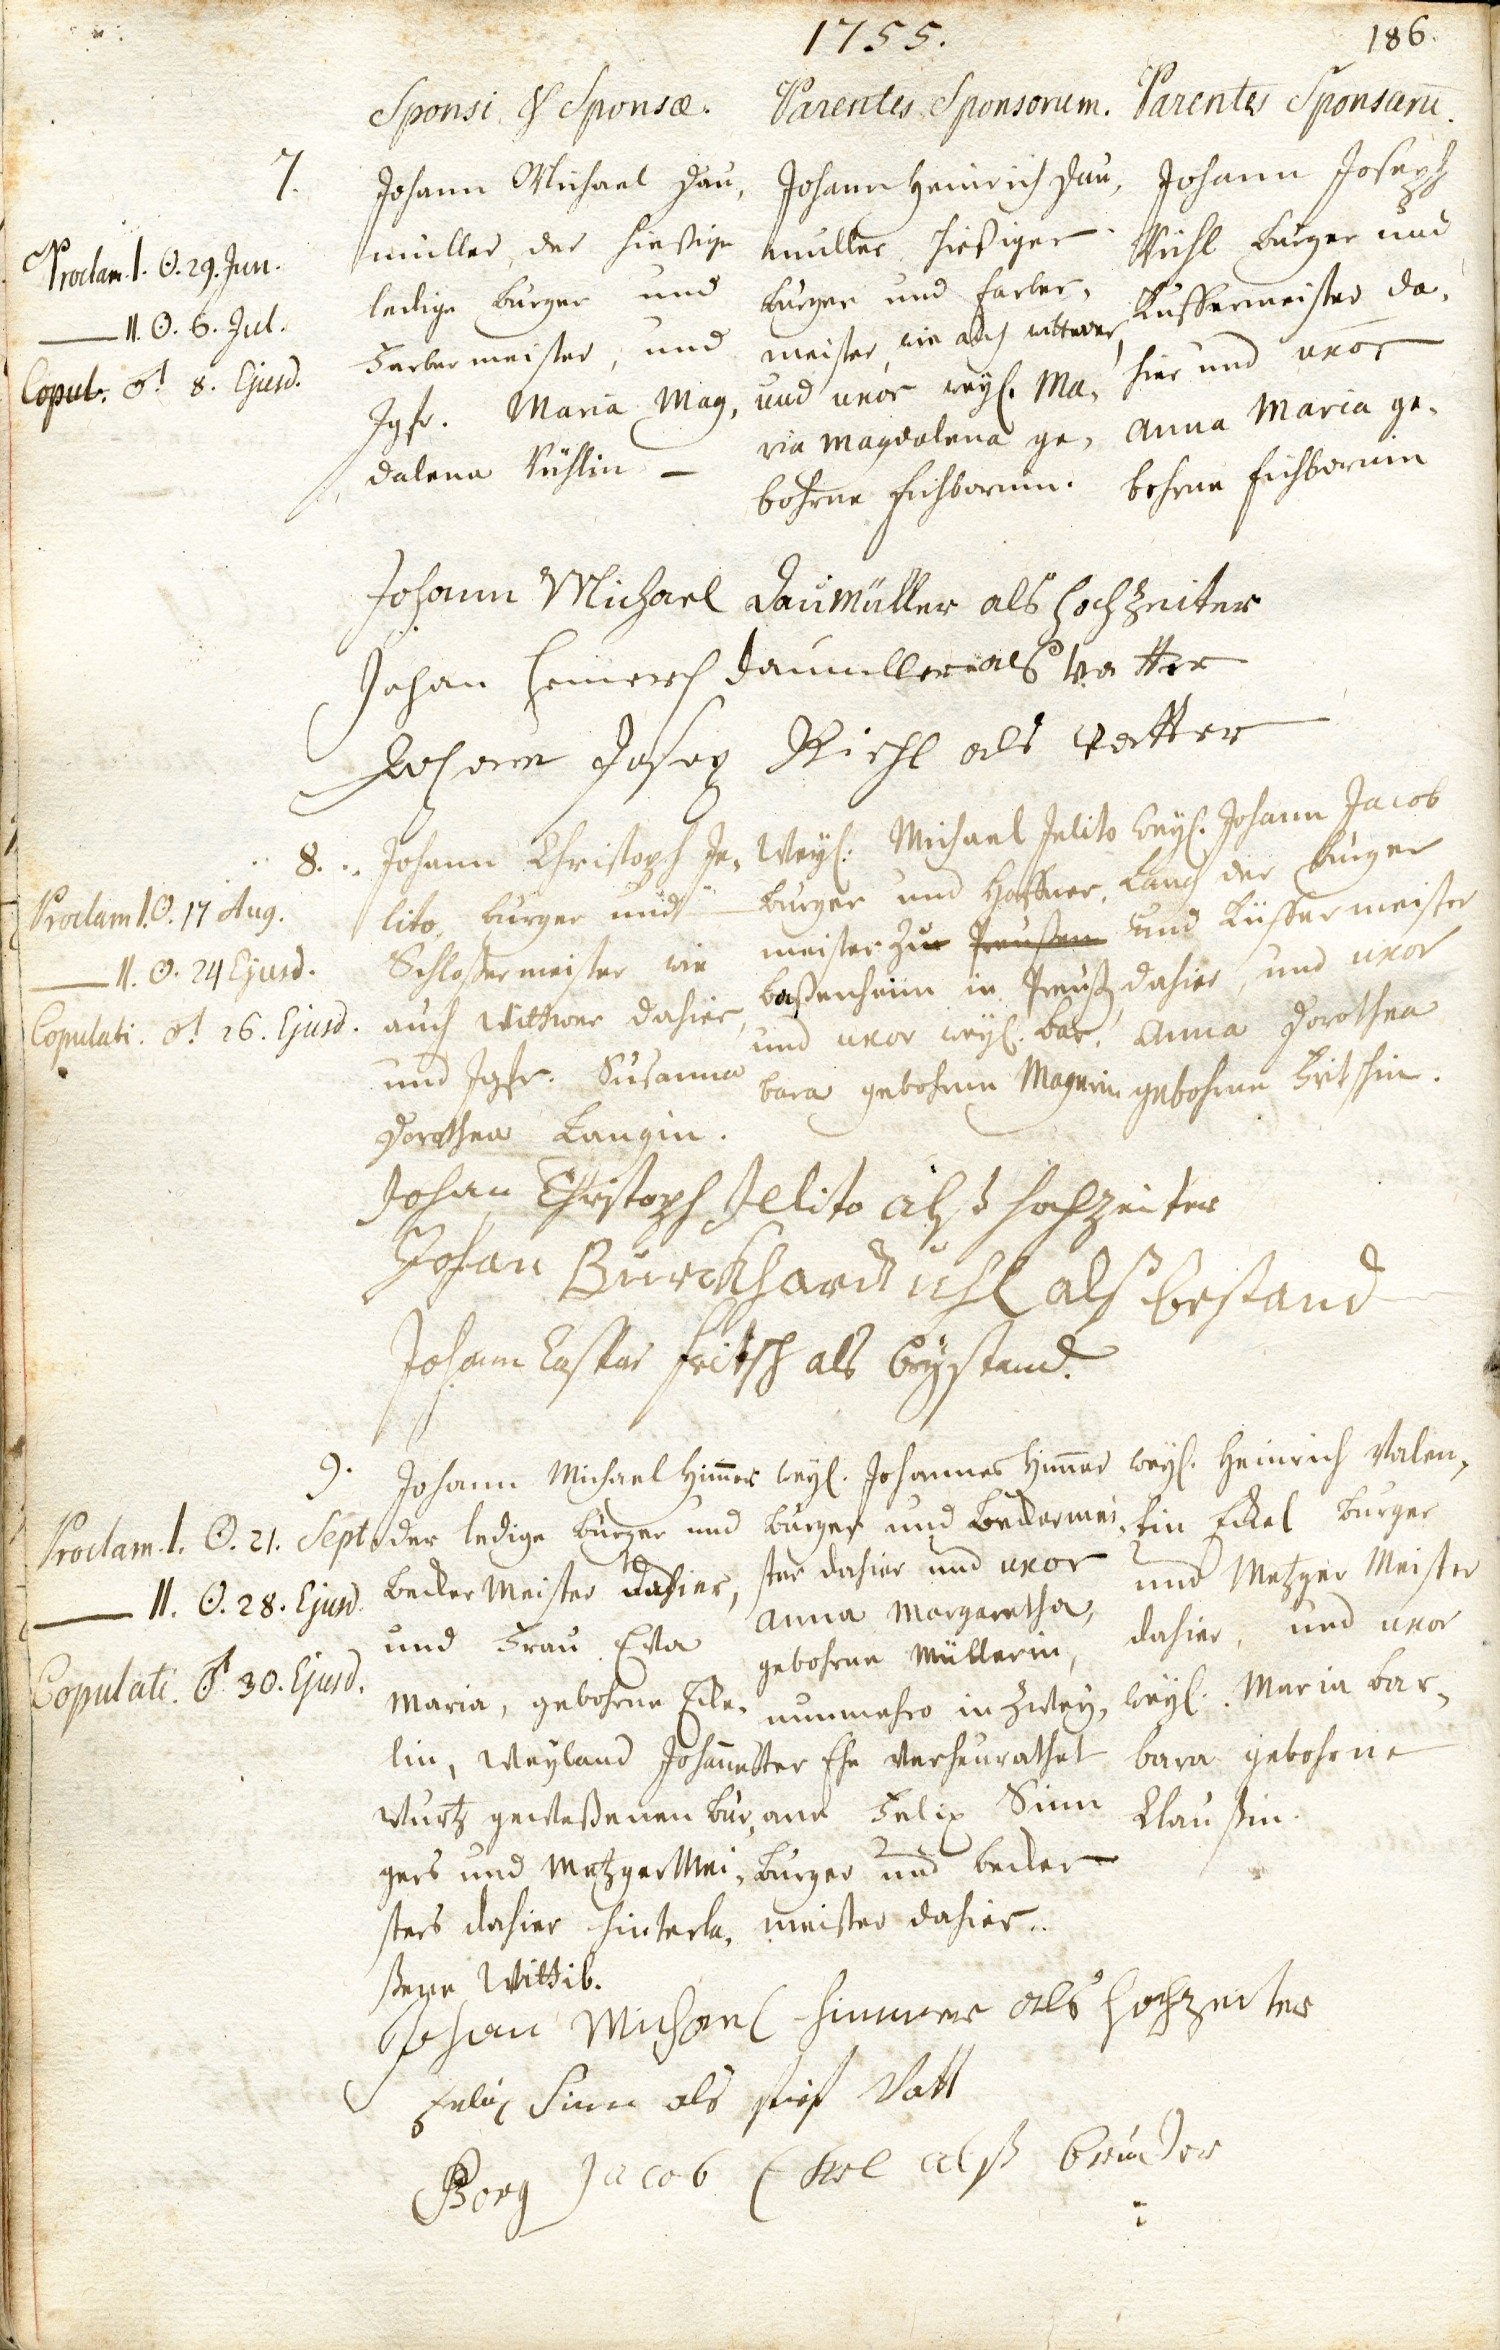 1755.
186.
Sponsi & Sponsæ.
Parentes Sponsorum.
Parentes Sponsarū.
7.
Proclam. I. ☉. 29. Jun.
— II. ☉. 6. Jul.
Copul. ♂ 8. Ejusd.
Johann Michael Dau,
müller, der hießige
ledige burger und
Farbermeister, und
Jgfr. Maria Mag,
dalena Rühlin —
Johann Heinrich Dau,
müller hießiger
burger und farber,
meister, wie auch wittwer,
und uxor weyl. Ma,
ria Magdalena ge,
bohrne Eichbornin.
Johann Joseph
Rühl burger und
Kuffermeister da,
hier und uxor
Anna Maria ge,
bohrne Eichbornin
Johann Michael Daumüller als hochzeiter
Johan Heinerch Daumller als vatter
Johann Josep Riehl als vatter
8.
Proclam I. ☉. 17 Aug.
— II. ☉. 24 Ejusd.
Copulati. ♂ 26. Ejusd.
Johann Christoph Je,
lito, burger und
Schloßermeister wie
auch Wittwer dahier,
und Jgfr. Susanna
Dorothea Langin.
Weyl. Michael Jelito
burger und Haffner,
meister zu Preußen
baßenheim in Preuß,
und uxor weyl. bar,
bara gebohrne Magerin
Weyl. Johann Jacob
Lang der burger
und Küffermeister
dahier, und uxor
Anna Dorothea
gebohrne Fritschin.
Johan Christoph Jelito alß hochzeiter
Johan Burckhardt Uhl alß bestand
Johann Caspar Fritsch als beystand.
9.
Proclam. I. ☉. 21. Sept.
— II. ☉. 28. Ejusd.
Copulati. ♂ 30. Ejusd.
Johann Michael Him̄er
der ledige burger und
becker Meister dahier,
und Frau Eva
Maria, gebohrne Ecke,
lin, Weyland Johannes
Wurtz geweßenen bur,
gers und Metzger Mei,
sters dahier hinterla,
ßene Wittib.
weyl. Johannes Him̄er
burger und beckermei,
ster dahier und uxor
Anna Margaretha,
gebohrne Müllerin,
nunmehro in zwey,
ter Ehe verheurathet
ane Felix Sinn
burger und becker
meister dahier.
weyl. Heinrich Valen,
tin Eckel burger
und Metzger Meister
dahier, und uxor
weyl. Maria bar,
bara gebohrne
Claußin.
Johan Michael Himmer als hochzeiter
Felix Sinn als stief Vatt
Georg Jacob Eckel alß bruder